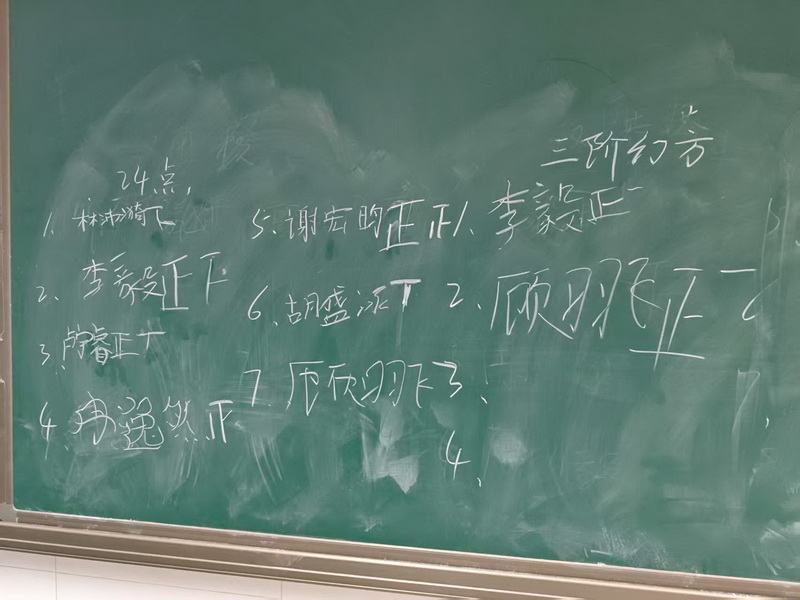 24点
1、林沛漪下
2、李毅正下
3、卢睿正丅
4、冉逸然正
5、谢宏昀正正
6、胡盛派丅
7 顾羽飞
三阶幻方
1、李毅正一
2、顾羽飞正一
3、
4、